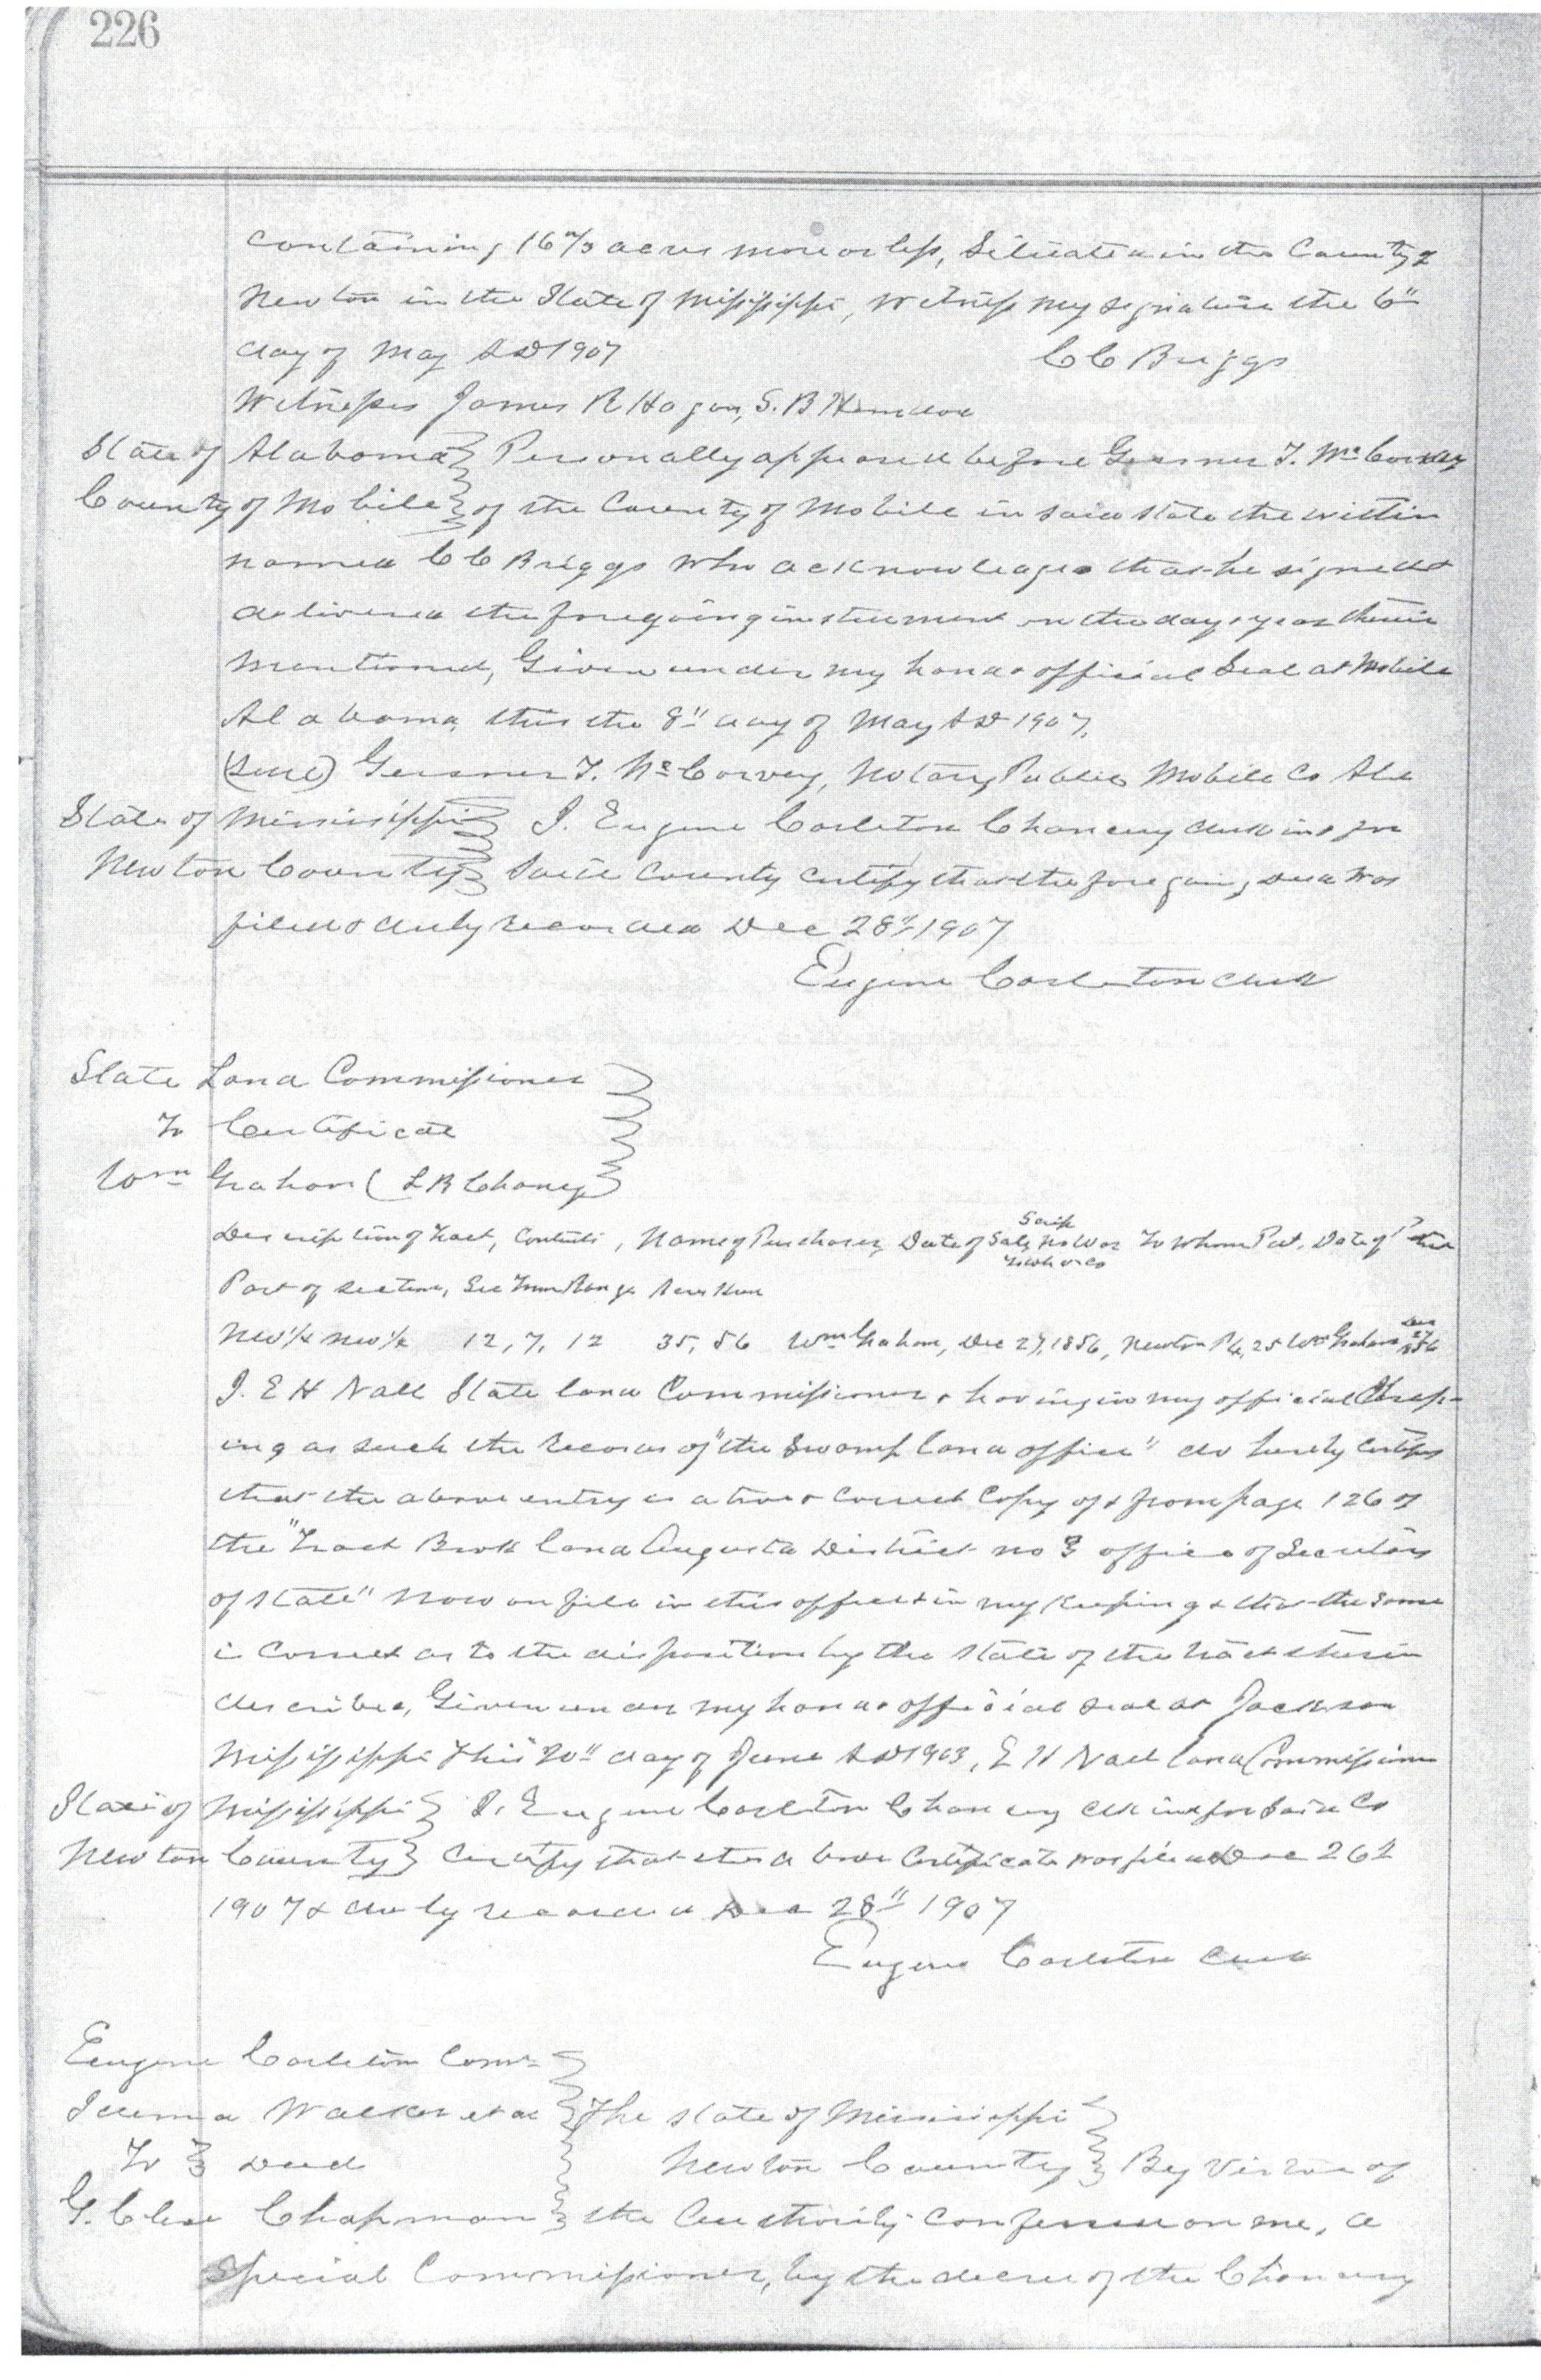 226
containing 160 acres more or less, Situated in the County of
Newton in the State of Mississippi, Witness my signature the 6"
day of May AD 1907 C C Briggs
Witnesses James R Hagan, S. B Herndon
State of Alabama Personally appeared before Gessner T. McCorvey
County of Mobile of the County of Mobile in said state the within
named C C Briggs who acknowledges that he signed &
delivered the foregoing instrument on the day & year therein
mentioned, Given under my hand & official Seal at Mobile
Alabama, this the 8" day of May AD 1907,
(Seal) Gessner T. McCorvey, Notary Public Mobile Co Ala
State of Mississippi I. Eugene Carleton Chancery Clerk in & for
Newton County Said County certify that the foregoing deed was
filed & duly recorded Dec 28" 1907
Eugene Carleton Clerk
State Land Commissioner
To Certificate
Wm Graham (L B Chaney)
Description of Tract, Contents, Name of Purchaser, Date of Sale, Scrip No War To Whom Pat. Date of
Part of section, Sec Town Range Acres Hun
NW 1/4 NW 1/4 12, 7, 12 35, 86 Wm Graham, Dec 27, 1856, Newton 25 Wm Graham Dec 27 1856
I. E H Nall State Land Commissioner & having in my official Keep-
ing as such the records of "the Swamp land office" do hereby certify
that the above entry is a true & correct copy of & from page 126 of
the "Tract Book land Augusta District no 3 office of Secretary
of State" now on file in this office & in my keeping & that the same
is correct as to the disposition by the State of the tract therein
described, Given under my hand & official seal at Jackson
Mississippi This 20" day of June AD 1903, E H Nall Land Commissioner
State of Mississippi I. Eugene Carleton Chancery Clk in & for Said Co
Newton County Certify that the above Certificate was filed Dec 26"
1907 & duly recorded Dec 28" 1907
Eugene Carleton Clerk
Eugene Carleton Comr
Walker et al The state of Mississippi
To Deed Newton County By Virtue of
G. Chapman the Authority conferred on me, a
Special Commissioner, by the decree of the Chancery